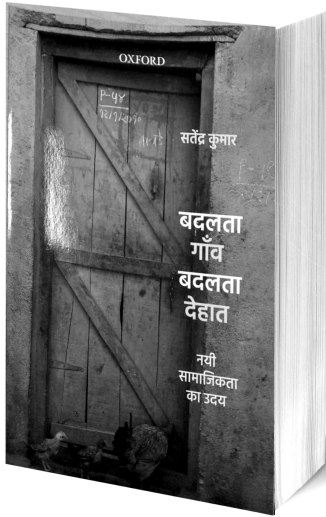 OXFORD
P-48
सतेंद्र कुमार
बदलता
गाँव
बदलता
देहात
नयी
सामाजिकता
का उदय